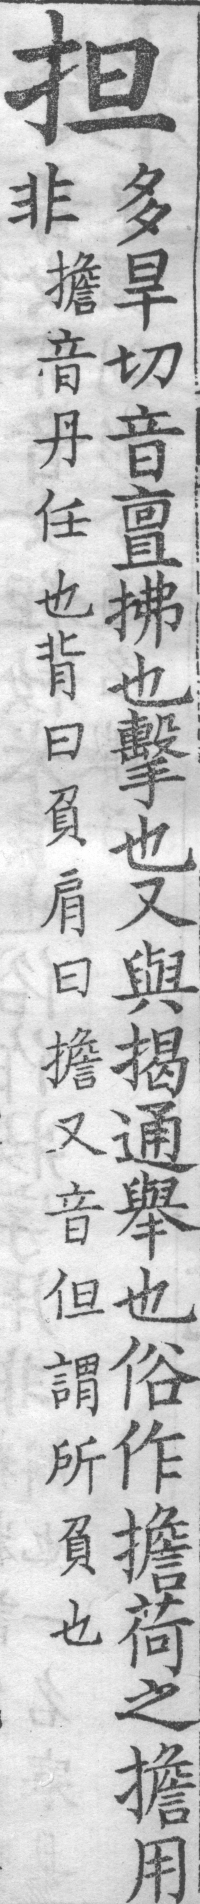 担
多旱切音亶拂也擊也又與揭通舉也俗作擔荷之擔用
非
擔音丹任也背曰負肩曰擔又音但謂所負也